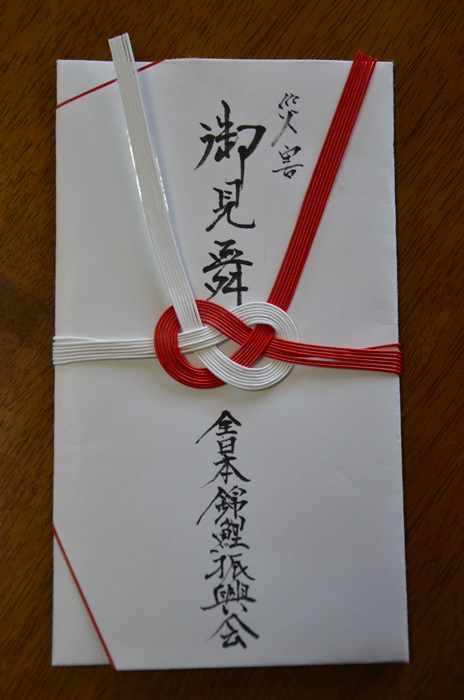 災害
御見舞
全日本錦鯉振興会